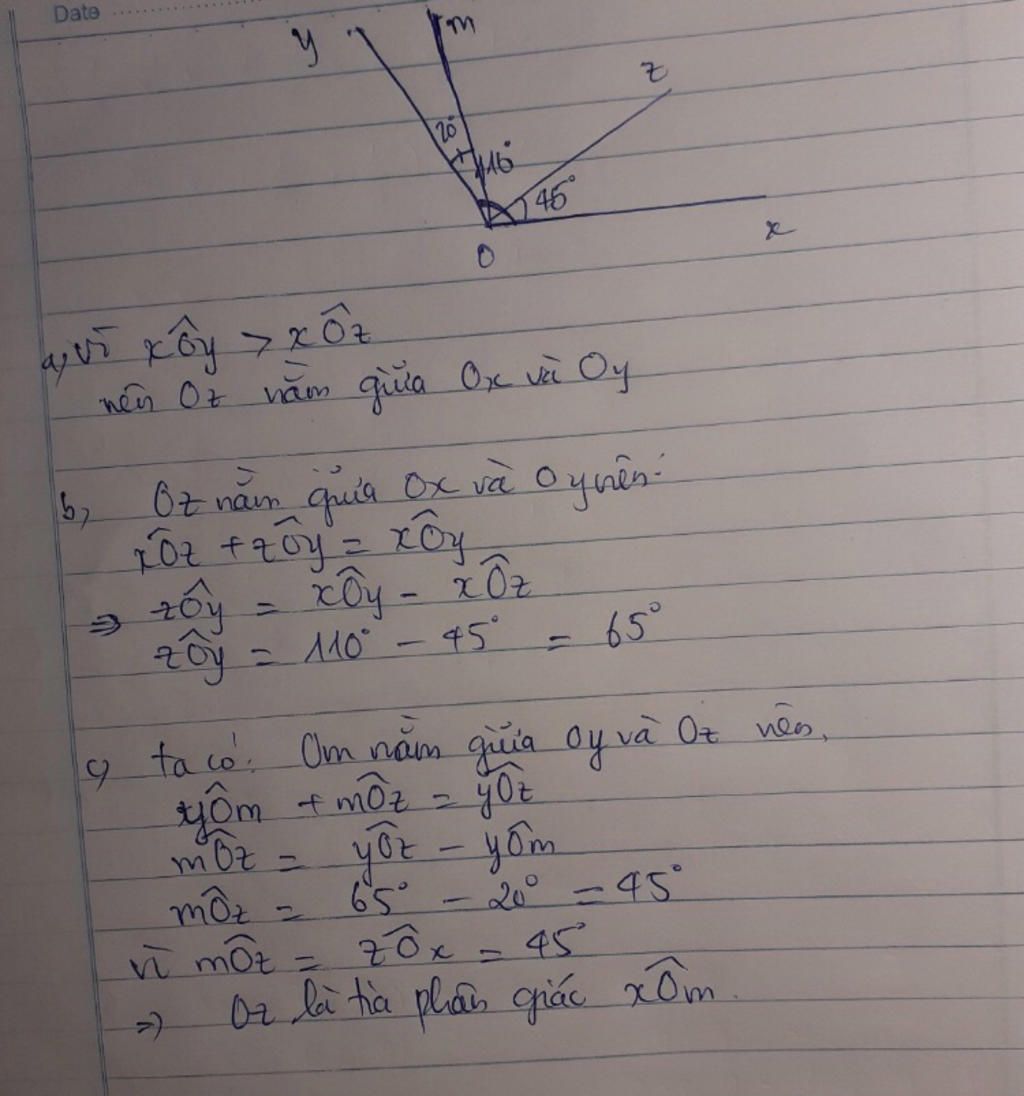 Date
y m z
20°
110°
45°
x
O
a, Vì xÔy > xÔz
nên Oz nằm giữa Ox và Oy
b, Oz nằm giữa Ox và Oy nên:
xÔz + zÔy = xÔy
⇒ zÔy = xÔy - xÔz
zÔy = 110° - 45° = 65°
c, ta có: Om nằm giữa Oy và Oz nên,
yÔm + mÔz = yÔz
mÔz = yÔz - yÔm
mÔz = 65° - 20° = 45°
vì mÔz = zÔx = 45°
⇒ Oz là tia phân giác xÔm.